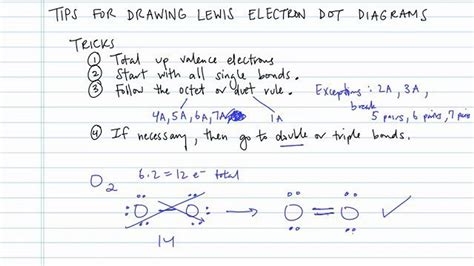 TIPS FOR DRAWING LEWIS ELECTRON DOT DIAGRAMS
TRICKS
① Total up valence electrons
② Start with all single bonds.
③ Follow the octet or duet rule. Exceptions: 2A, 3A,
4A, 5A, 6A, 7A 1A break
5 pairs, 6 pairs, 7 pairs
④ If necessary, then go to double or triple bonds.
O₂ 6·2=12 e⁻ total
:O-O: → O=O ✓
14